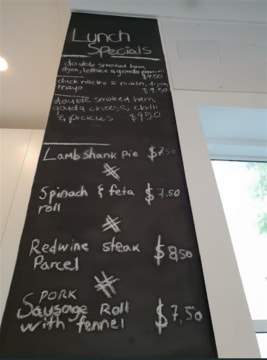 Lunch
Specials
double smoked ham,
dijon, lettuce & gouda
$9.50
mayo $9.50
double smoked ham
gouda cheese, chilli
& pickles $9.50
Lamb shank pie $7.50
#
Spinach & feta $7.50
roll
#
Redwine steak $8.50
Parcel
#
PORK
Sausage Roll $7.50
with fennel